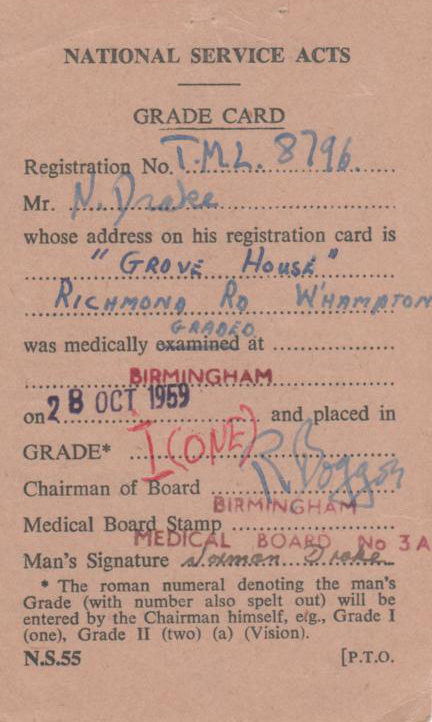 NATIONAL SERVICE ACTS
GRADE CARD
Registration No. T.M.L. 8796.
Mr. N. Drake
whose address on his registration card is
"GROVE HOUSE"
RICHMOND RD W'HAMPTON
GRADED
was medically examined at
BIRMINGHAM
on 28 OCT 1959 and placed in
GRADE* I (ONE)
Chairman of Board R Boggon
BIRMINGHAM
Medical Board Stamp
MEDICAL BOARD No 3A
Man's Signature Norman Drake
* The roman numeral denoting the man's
Grade (with number also spelt out) will be
entered by the Chairman himself, e/g., Grade I
(one), Grade II (two) (a) (Vision).
N.S.55 [P.T.O.